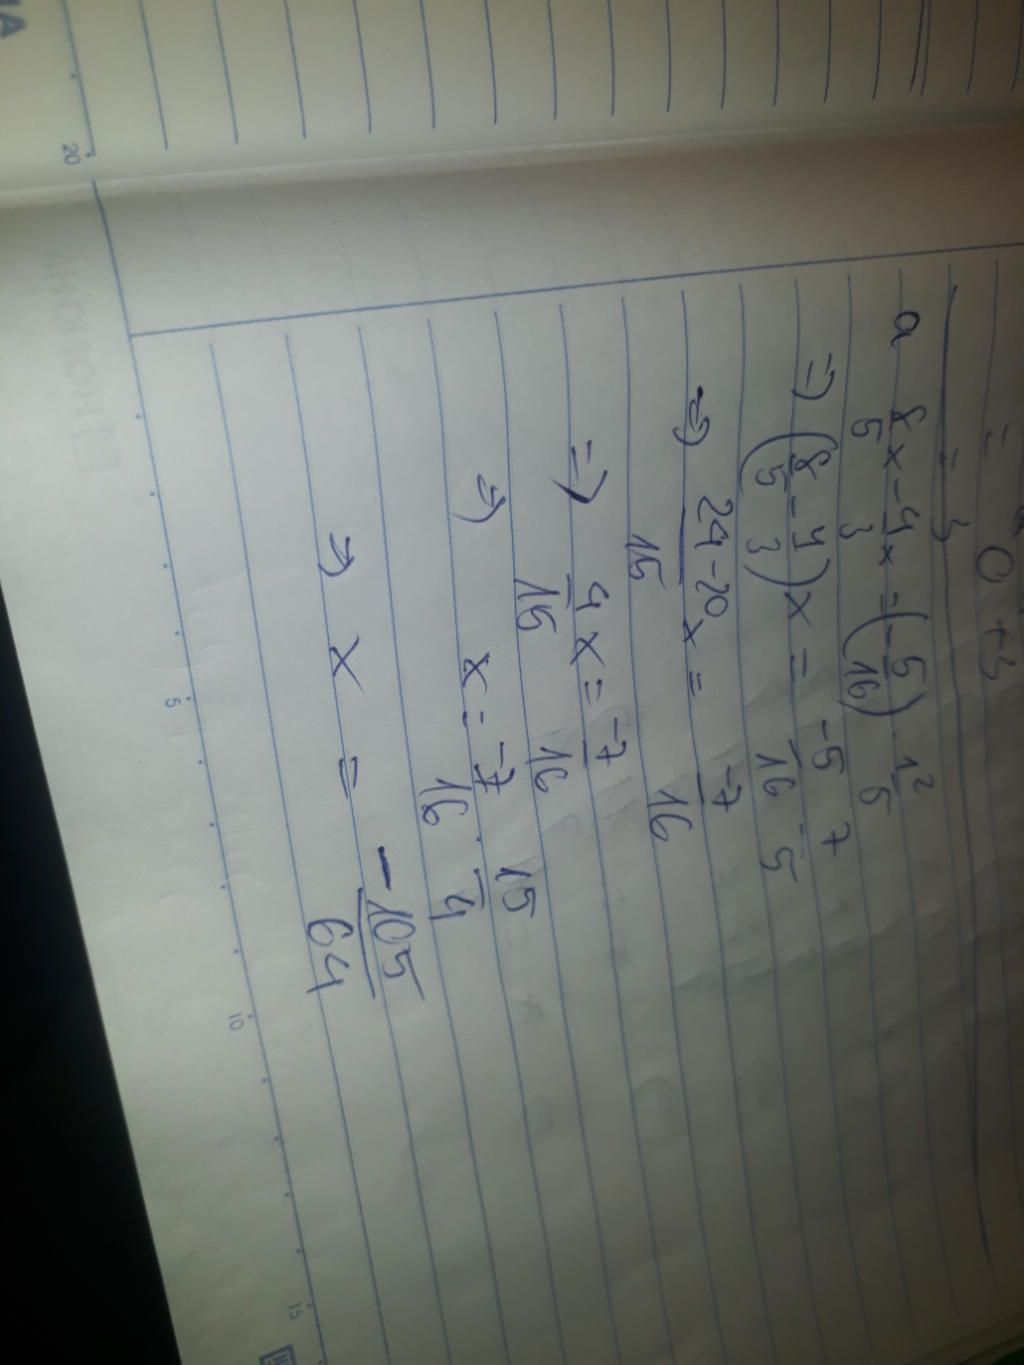 = 0 + 3
= 3
a 8/5 x - 4/3 x = (-5/16) · 1 2/5
=> (8/5 - 4/3) x = -5/16 · 7/5
=> 24-20/15 x = -7/16
=> 4/15 x = -7/16
=> x = -7/16 · 15/4
=> x = -105/64
20
5
10
15